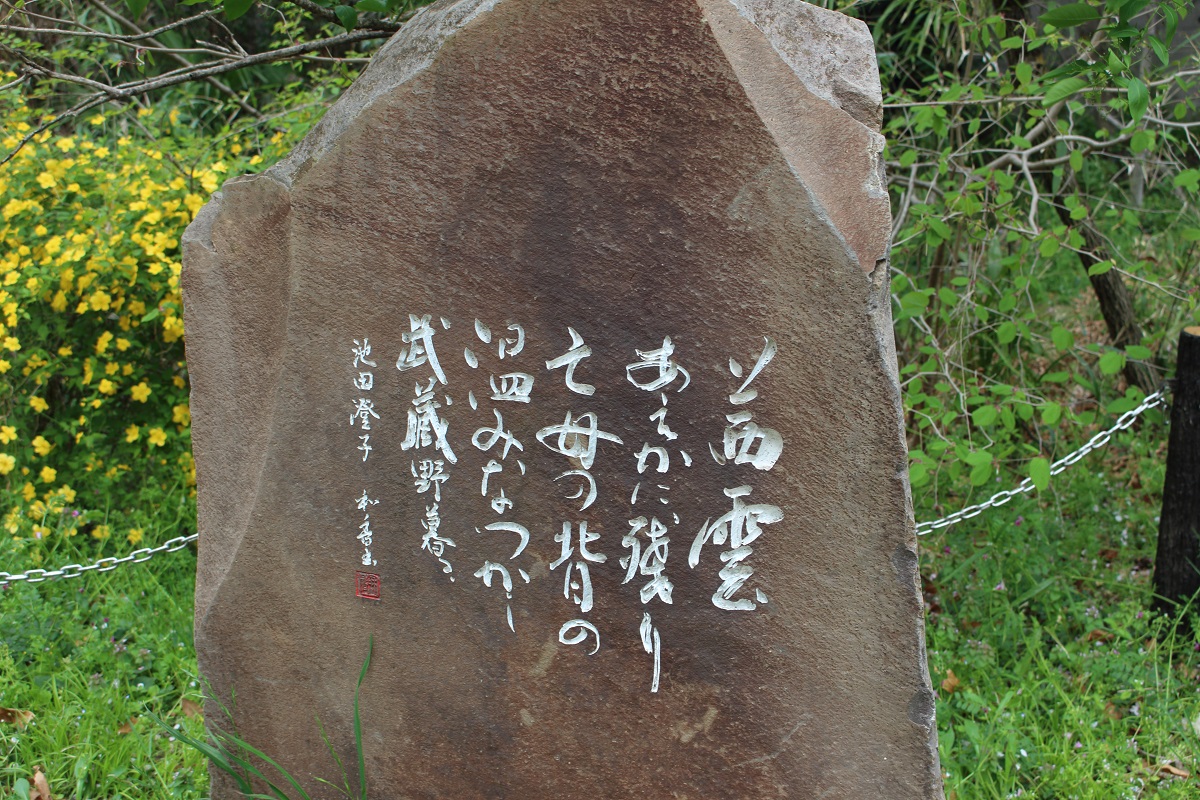 茜雲
あえかに残り
亡母の背の
温みなつかし
武蔵野暮るゝ
池田澄子 和香書